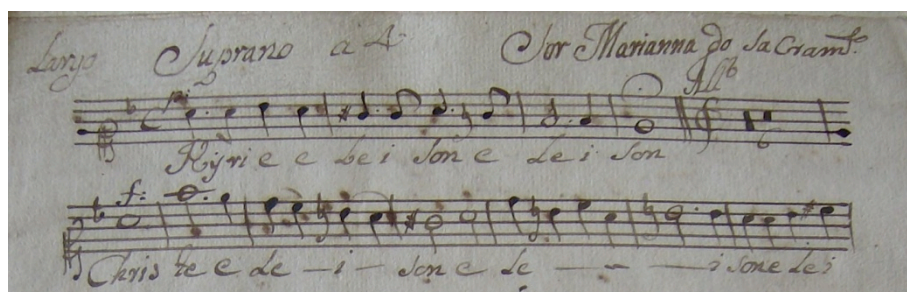 Largo Suprano a 4 Sor Marianna do Sacramto.
All°
p:
Kyri e e lei son e lei son
6
f:
Chris te e le - i - son e le - - - i sone lei